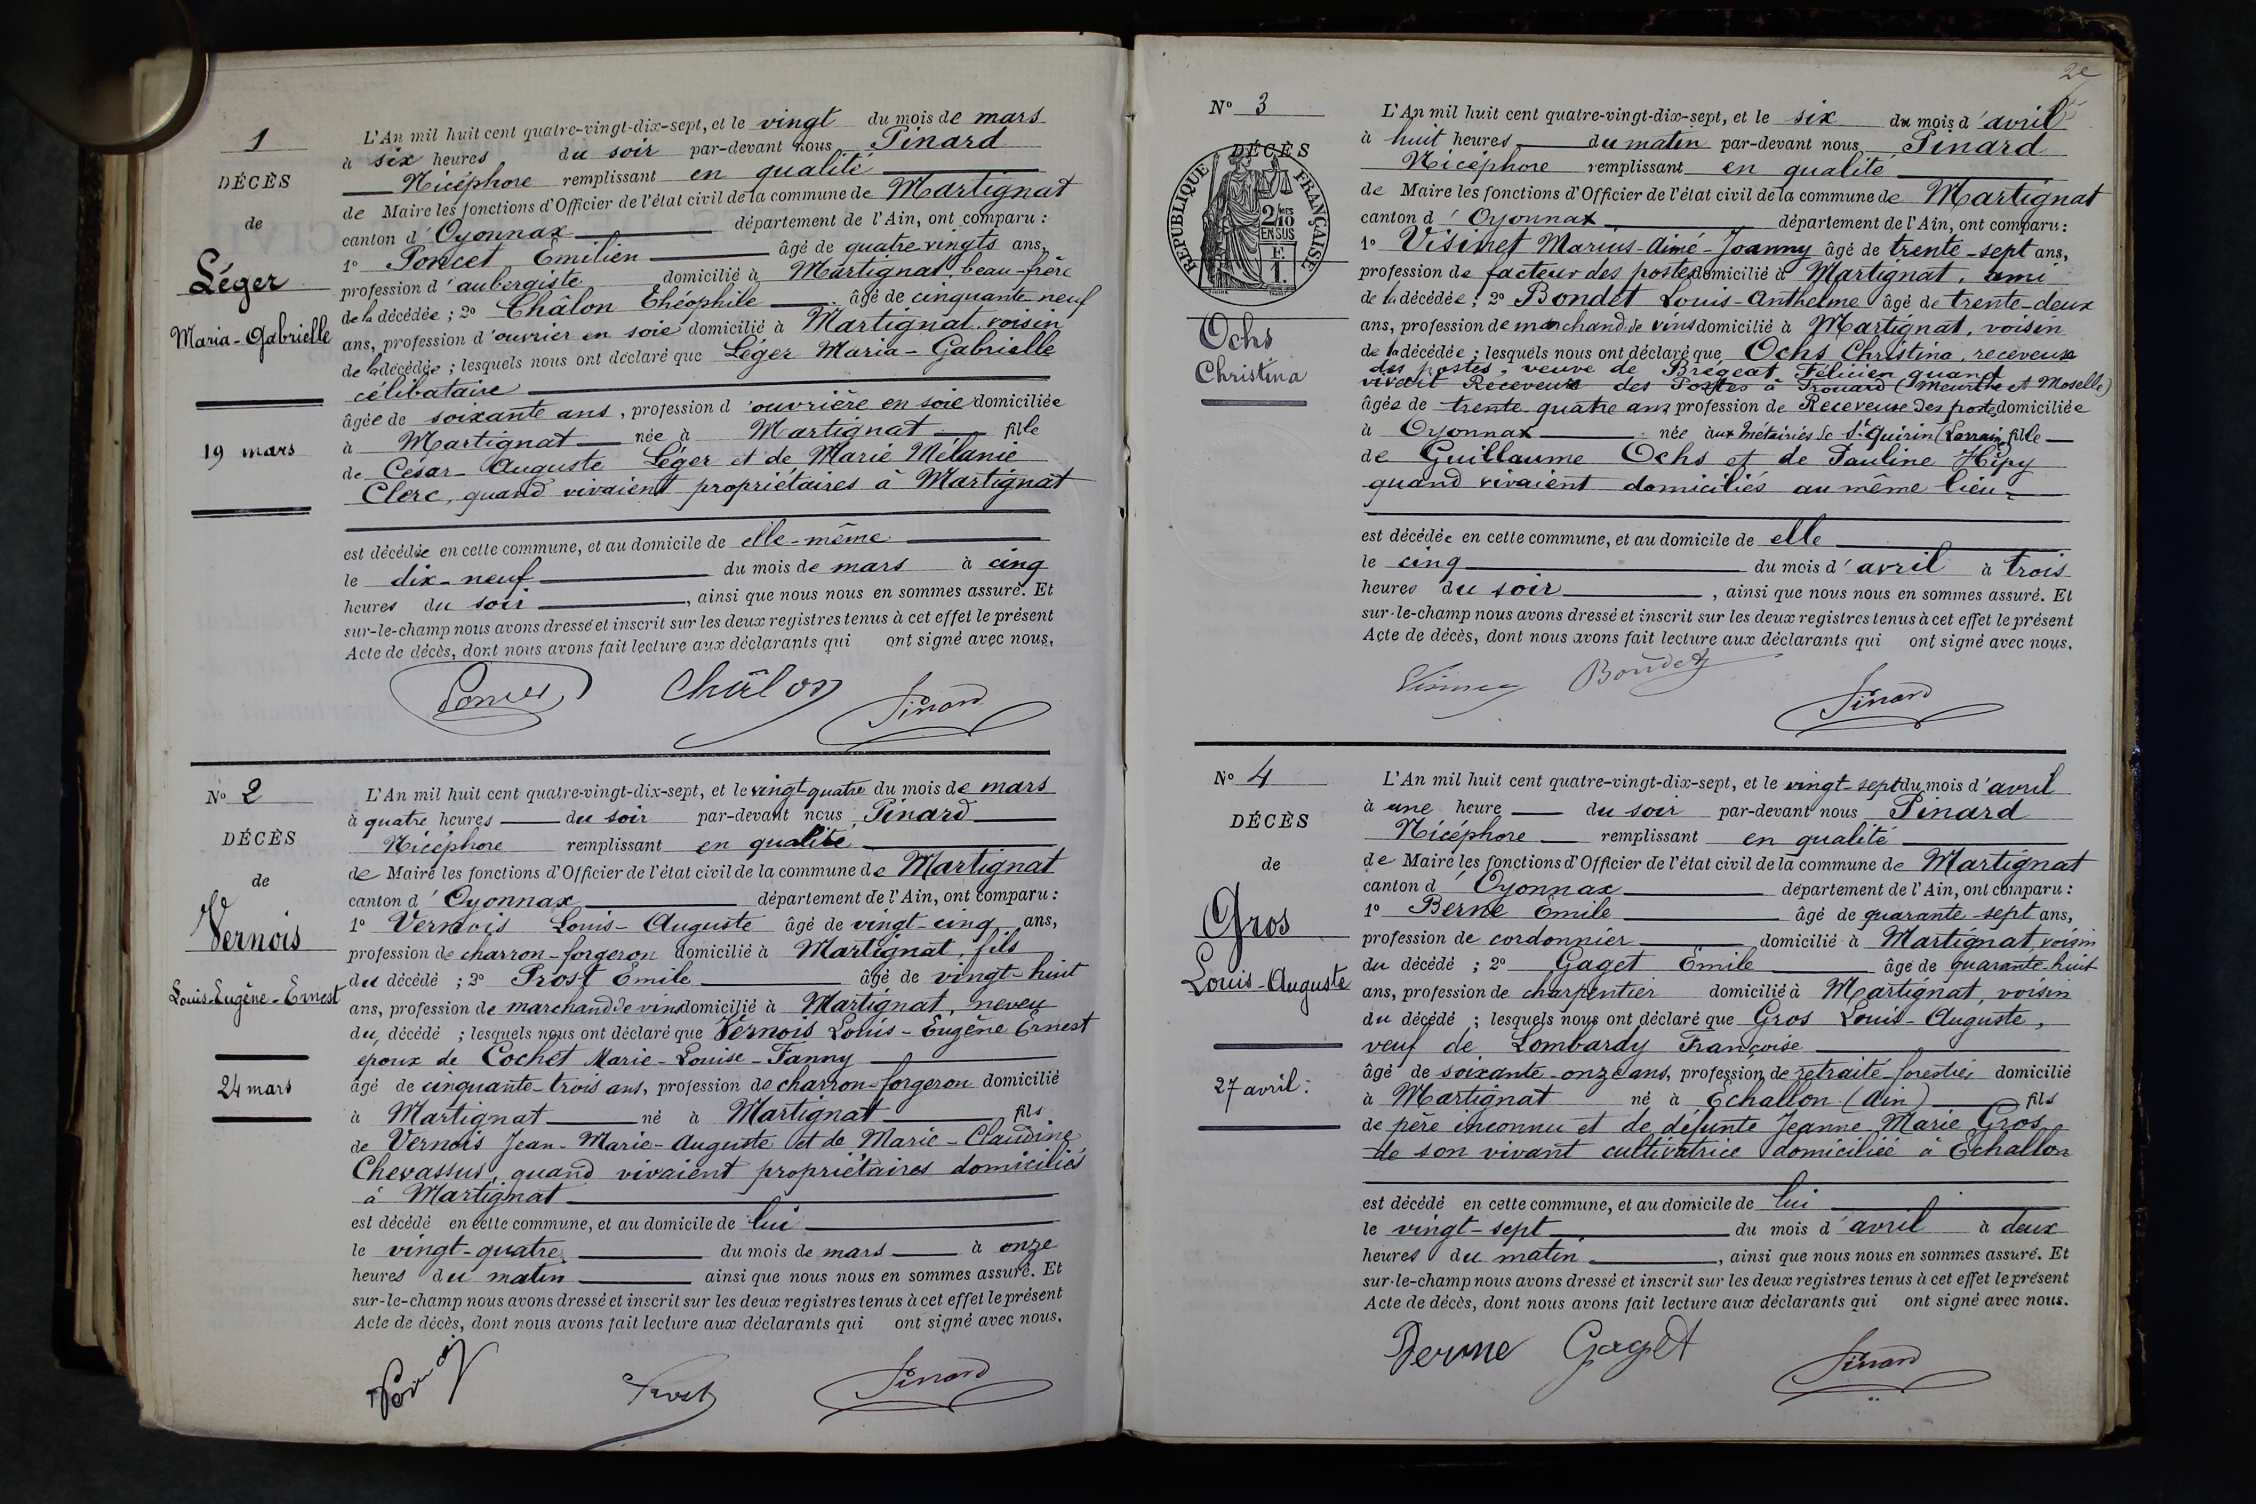 1
DÉCÈS
de
Léger
Maria-Gabrielle
19 mars
L'An mil huit cent quatre-vingt-dix-sept, et le vingt du mois de mars
à six heures du soir par-devant nous Pinard
Nicéphore remplissant en qualité
de Maire les fonctions d'Officier de l'état civil de la commune de Martignat
canton d'Oyonnax département de l'Ain, ont comparu :
1º Poncet Emilien âgé de quatre vingts ans,
profession d'aubergiste domicilié à Martignat, beau-frère
de la décédée ; 2º Châlon Théophile âgé de cinquante neuf
ans, profession d'ouvrier en soie domicilié à Martignat. voisin
de la décédée ; lesquels nous ont déclaré que Léger Maria-Gabrielle
célibataire
âgée de soixante ans, profession d'ouvrière en soie domiciliée
à Martignat née à Martignat fille
de César-Auguste Léger et de Marie Mélanie
Clerc, quand vivaient propriétaires à Martignat
est décédée en cette commune, et au domicile de elle-même
le dix-neuf du mois de mars à cinq
heures du soir, ainsi que nous nous en sommes assuré. Et
sur-le-champ nous avons dressé et inscrit sur les deux registres tenus à cet effet le présent
Acte de décès, dont nous avons fait lecture aux déclarants qui ont signé avec nous.
Poncet Châlon Pinard
Nº 2
DÉCÈS
de
Vernois
Louis-Eugène-Ernest
24 mars
L'An mil huit cent quatre-vingt-dix-sept, et le vingt-quatre du mois de mars
à quatre heures du soir par-devant nous Pinard
Nicéphore remplissant en qualité
de Maire les fonctions d'Officier de l'état civil de la commune de Martignat
canton d'Oyonnax département de l'Ain, ont comparu :
1º Vernois Louis-Auguste âgé de vingt-cinq ans,
profession de charron-forgeron domicilié à Martignat, fils
du décédé ; 2º Prost Emile âgé de vingt-huit
ans, profession de marchand de vins domicilié à Martignat, neveu
du décédé ; lesquels nous ont déclaré que Vernois Louis-Eugène Ernest
époux de Cochet Marie-Louise-Fanny
âgé de cinquante-trois ans, profession de charron-forgeron domicilié
à Martignat né à Martignat fils
de Vernois Jean-Marie-Auguste et de Marie-Claudine
Chevassus, quand vivaient propriétaires domiciliés
à Martignat
est décédé en cette commune, et au domicile de lui
le vingt-quatre du mois de mars à onze
heures du matin ainsi que nous nous en sommes assuré. Et
sur-le-champ nous avons dressé et inscrit sur les deux registres tenus à cet effet le présent
Acte de décès, dont nous avons fait lecture aux déclarants qui ont signé avec nous.
Prost Pinard
2e
Nº 3
DÉCÈS
RÉPUBLIQUE FRANÇAISE
2/10
EN SUS
F.
1.
Ochs
Christina
L'An mil huit cent quatre-vingt-dix-sept, et le six du mois d'avril
à huit heures du matin par-devant nous Pinard
Nicéphore remplissant en qualité
de Maire les fonctions d'Officier de l'état civil de la commune de Martignat
canton d'Oyonnax département de l'Ain, ont comparu :
1º Visinet Marius-Aimé-Joanny âgé de trente-sept ans,
profession de facteur des postes domicilié à Martignat, ami
de la décédée ; 2º Bondet Louis-Anthelme âgé de trente-deux
ans, profession de marchand de vins domicilié à Martignat, voisin
de la décédée ; lesquels nous ont déclaré que Ochs Christina, receveuse
des postes, veuve de Brégeat Félicien quand
vivait Receveur des Postes à Frouard (Meurthe et Moselle)
âgée de trente quatre ans profession de Receveuse des postes domiciliée
à Oyonnax née aux Métairies de St Quirin (Lorraine) fille
de Guillaume Ochs et de Pauline Hipy
quand vivaient domiciliés au même lieu
est décédée en cette commune, et au domicile de elle
le cinq du mois d'avril à trois
heures du soir, ainsi que nous nous en sommes assuré. Et
sur-le-champ nous avons dressé et inscrit sur les deux registres tenus à cet effet le présent
Acte de décès, dont nous avons fait lecture aux déclarants qui ont signé avec nous.
Bondet Pinard
Nº 4
DÉCÈS
de
Gros
Louis-Auguste
27 avril
L'An mil huit cent quatre-vingt-dix-sept, et le vingt-sept du mois d'avril
à une heure du soir par-devant nous Pinard
Nicéphore remplissant en qualité
de Maire les fonctions d'Officier de l'état civil de la commune de Martignat
canton d'Oyonnax département de l'Ain, ont comparu :
1º Berne Emile âgé de quarante-sept ans,
profession de cordonnier domicilié à Martignat voisin
du décédé ; 2º Gaget Emile âgé de quarante-huit
ans, profession de charpentier domicilié à Martignat, voisin
du décédé ; lesquels nous ont déclaré que Gros Louis-Auguste,
veuf de Lombardy Françoise
âgé de soixante-onze ans, profession de retraité forestier domicilié
à Martignat né à Echallon (Ain) fils
de père inconnu et de défunte Jeanne Marie Gros
de son vivant cultivatrice domiciliée à Echallon
est décédé en cette commune, et au domicile de lui
le vingt-sept du mois d'avril à deux
heures du matin, ainsi que nous nous en sommes assuré. Et
sur-le-champ nous avons dressé et inscrit sur les deux registres tenus à cet effet le présent
Acte de décès, dont nous avons fait lecture aux déclarants qui ont signé avec nous.
Berne Gaget Pinard